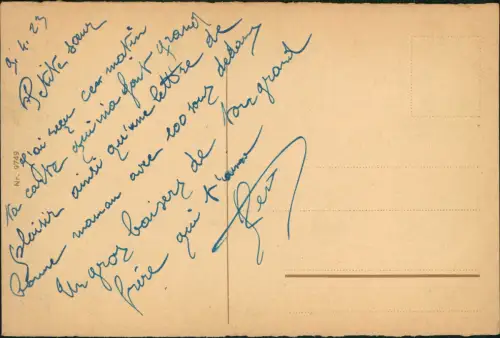 9.4.23
Petite sœur
J'ai reçu ce matin
ta carte qui m'a fait grand
plaisir ainsi qu'une lettre de
bonne maman avec 100 sous dedans
Un gros baisers de ton grand
frère qui t'aime
Nr. 9749